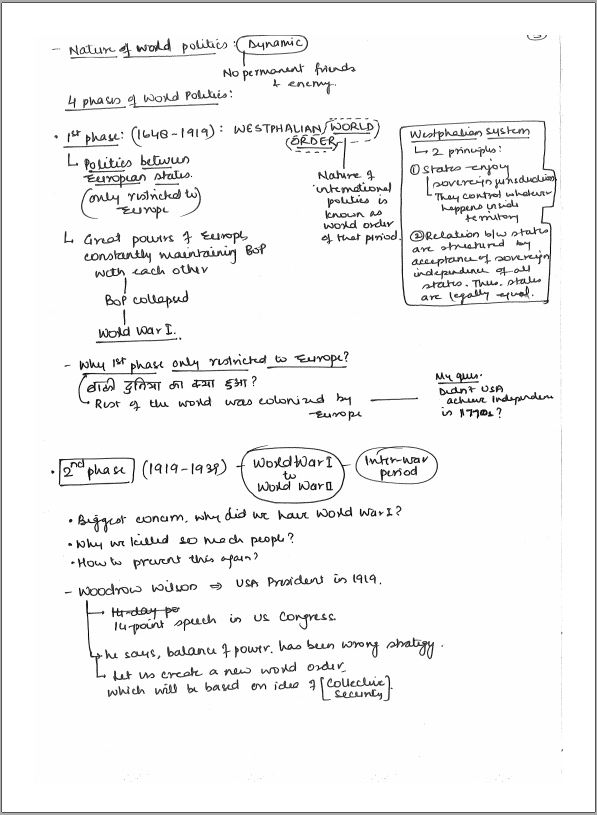 - Nature of world politics: Dynamic
No permanent friends
& enemy.
4 phases of World Politics:
• 1st phase: (1648-1919): WESTPHALIAN/WORLD
ORDER/
↳ Politics between
European states.
(only restricted to
Europe)
Nature of
international
politics is
known as
world order
of that period.
Westphalian System
↳ 2 principles:
① States enjoy
sovereign jurisdiction
They control whatever
happens inside
territory
② Relation b/w states
are structured by
acceptance of sovereign
independence of all
states. Thus, states
are legally equal.
↳ Great powers of Europe
constantly maintaining BoP
with each other
BoP collapsed
World War I.
- Why 1st phase only restricted to Europe?
बाकी दुनिया का क्या हुआ?
Rest of the world was colonized by
Europe
My ques.
Didn't USA
achieve Independence
in 1770s?
• 2nd phase (1919-1939) - World War I
to
World War II
- Inter-war
period
• Biggest concern, why did we have World War I?
• Why we killed so much people?
• How to prevent this again?
- Woodrow Wilson ⇒ USA President in 1919.
→ 14-day po
14-point speech in US Congress.
↳ he says, balance of power has been wrong strategy.
↳ Let us create a new world order
which will be based on idea of [Collective
Security].